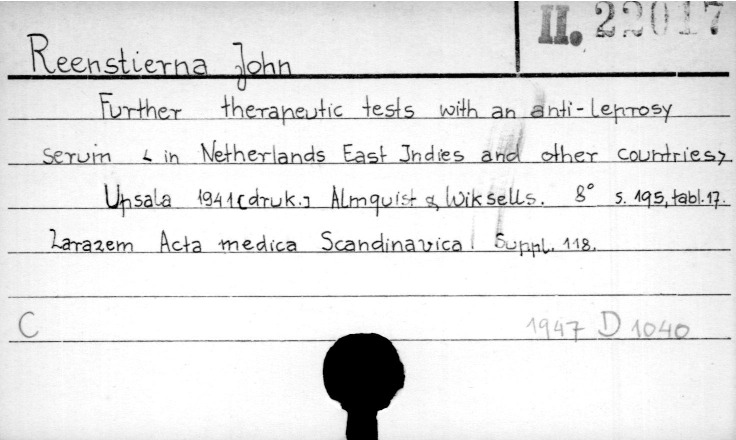 II. 22017
Reenstierna John
Further therapeutic tests with an anti-leprosy
serum < in Netherlands East Indies and other countries>
Upsala 1941 [druk.] Almquist & Wiksells. 8° s. 195, tabl. 17.
Zarazem Acta medica Scandinavica. Suppl. 118.
C 1947 D 1040